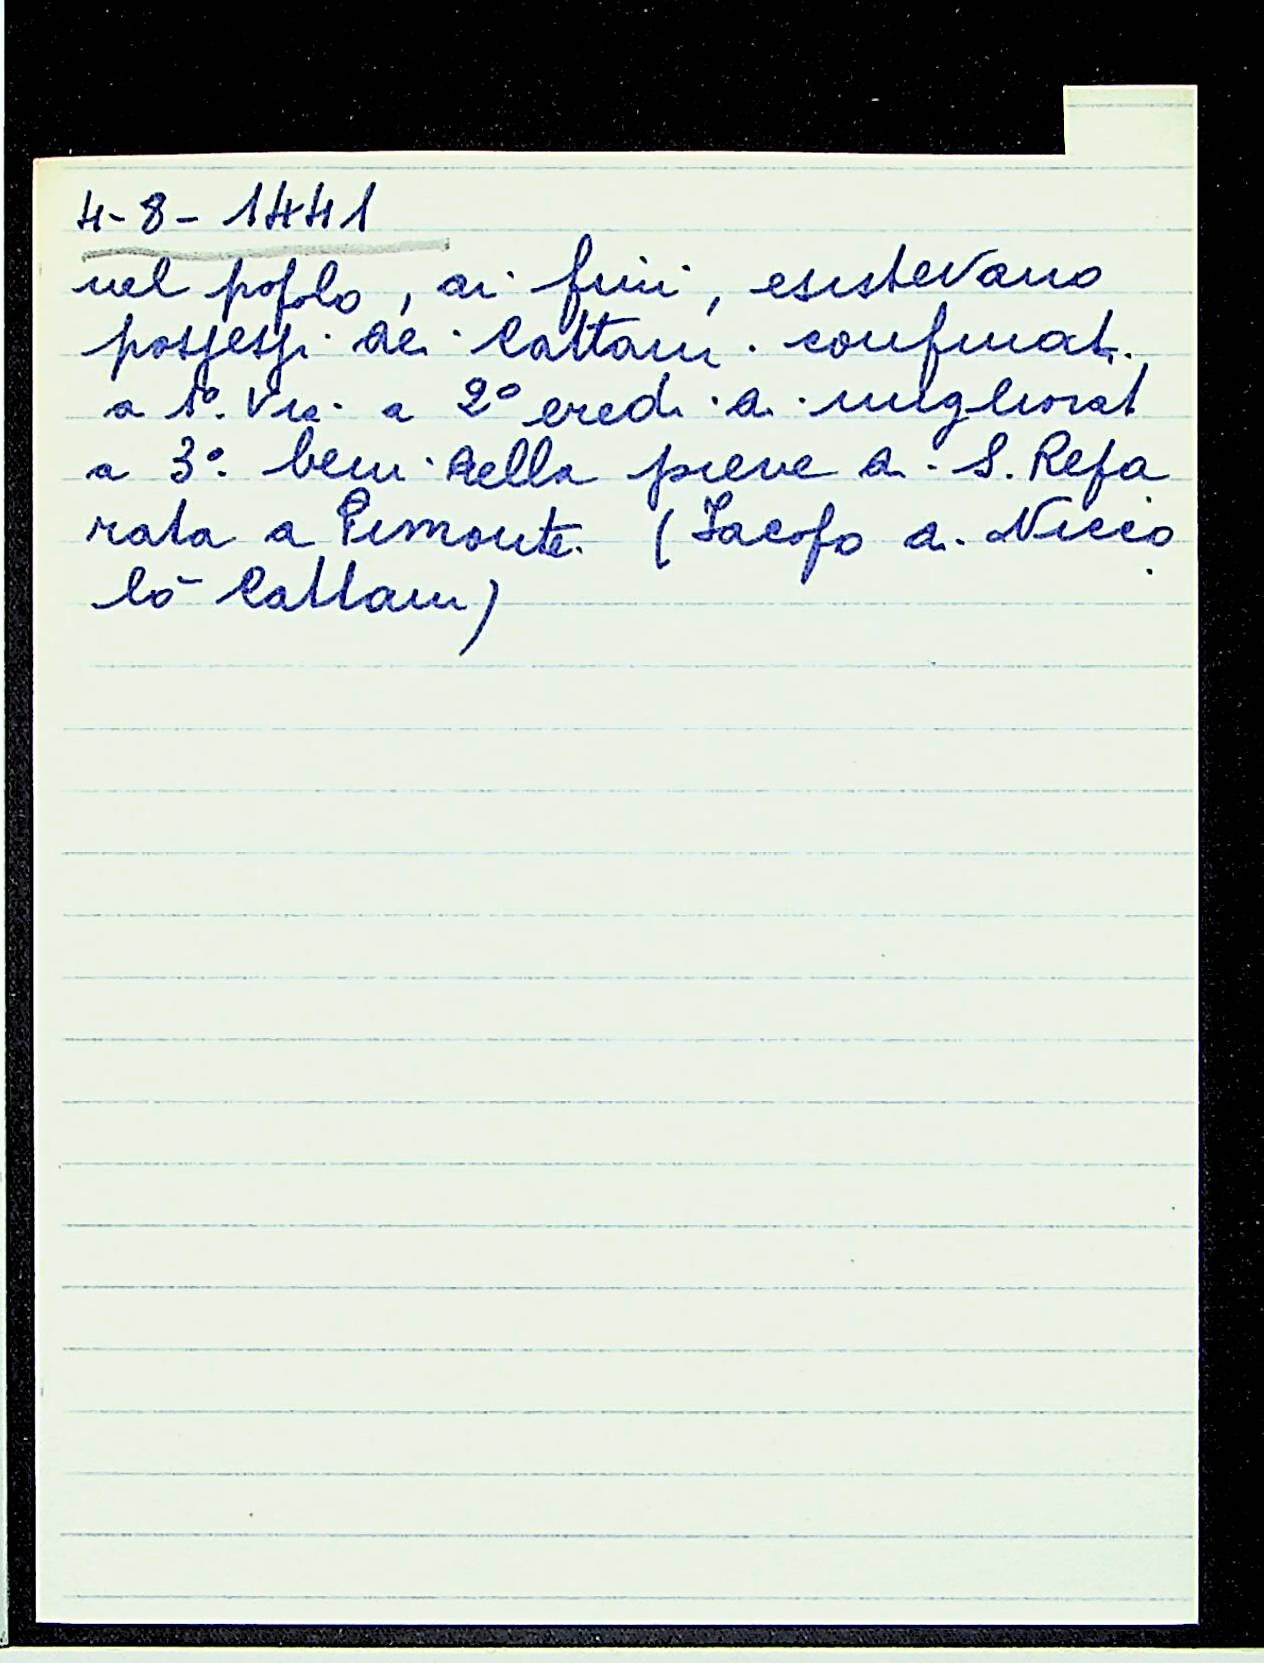 4-8-1441
nel popolo, ai fini, esistevano
possessi dei Cattani confinati
a 1° via a 2° eredi di migliorat
a 3° beni della pieve di S. Repa
rata a Pimonte. (Jacopo di Nicco
lò Cattani)